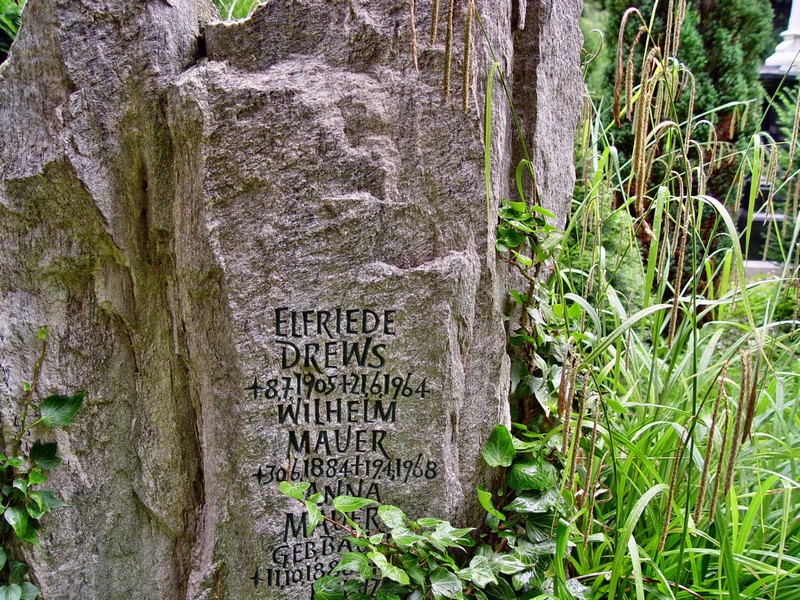 ELFRIEDE
DREWS
+8.7.1905+21.6.1964
WILHELM
MAUER
+30.6.1884+19.4.1968
ANNA
MAUER
GEB.